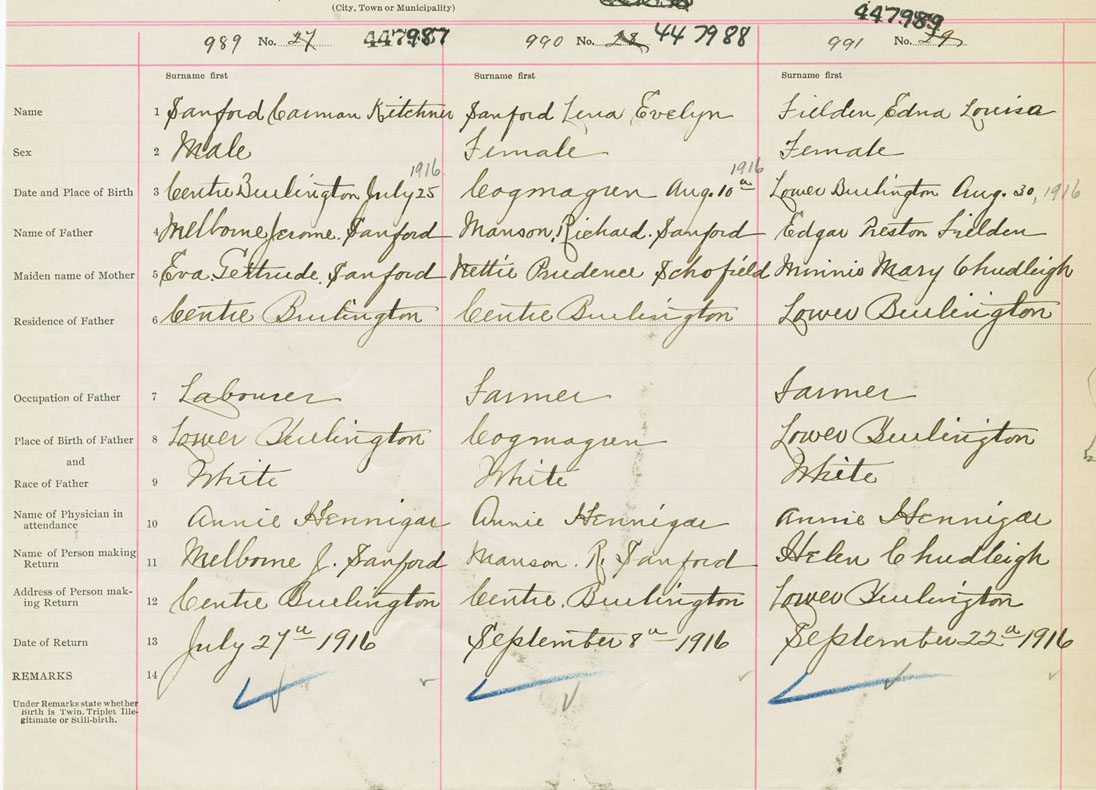 (City, Town or Municipality)
447989
989 No. 27 447987 990 No. 28 447988 991 No. 29
Surname first Surname first Surname first
Name 1 Sanford Carman Kitchner Sanford Lena Evelyn Fielden Edna Louisa
Sex 2 Male Female Female
1916 1916
Date and Place of Birth 3 Centre Burlington July 25 Cogmagren Aug. 10th Lower Burlington Aug. 30, 1916
Name of Father 4 Melborne Jerome. Sanford Manson. Richard. Sanford Edgar Preston Fielden
Maiden name of Mother 5 Eva. Gertrude. Sanford Nettie Prudence Schofield Minnie Mary Chudleigh
Residence of Father 6 Centre Burlington Centre Burlington Lower Burlington
Occupation of Father 7 Labourer Farmer Farmer
Place of Birth of Father 8 Lower Burlington Cogmagren Lower Burlington
and
Race of Father 9 White White White
Name of Physician in
attendance 10 Annie Hennigar Annie Hennigar Annie Hennigar
Name of Person making
Return 11 Melborne J. Sanford Manson. R. Sanford Helen Chudleigh
Address of Person mak-
ing Return 12 Centre Burlington Centre. Burlington Lower Burlington
Date of Return 13 July 27th 1916 September 8th 1916 September 22th 1916
REMARKS 14
Under Remarks state whether
Birth is Twin. Triplet Ille-
gitimate or Still-birth.